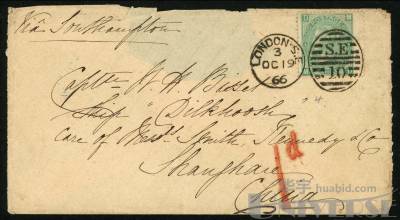 Via Southampton
LONDON·S.E
3
OC 19
66
S.E.
10
Captn W. H. Bisset
Ship "Dilkhoosh"
Care of Messrs Smith, Kennedy & Co
Shanghae
China
1d
华宇 huabid.com
UNIVERSE